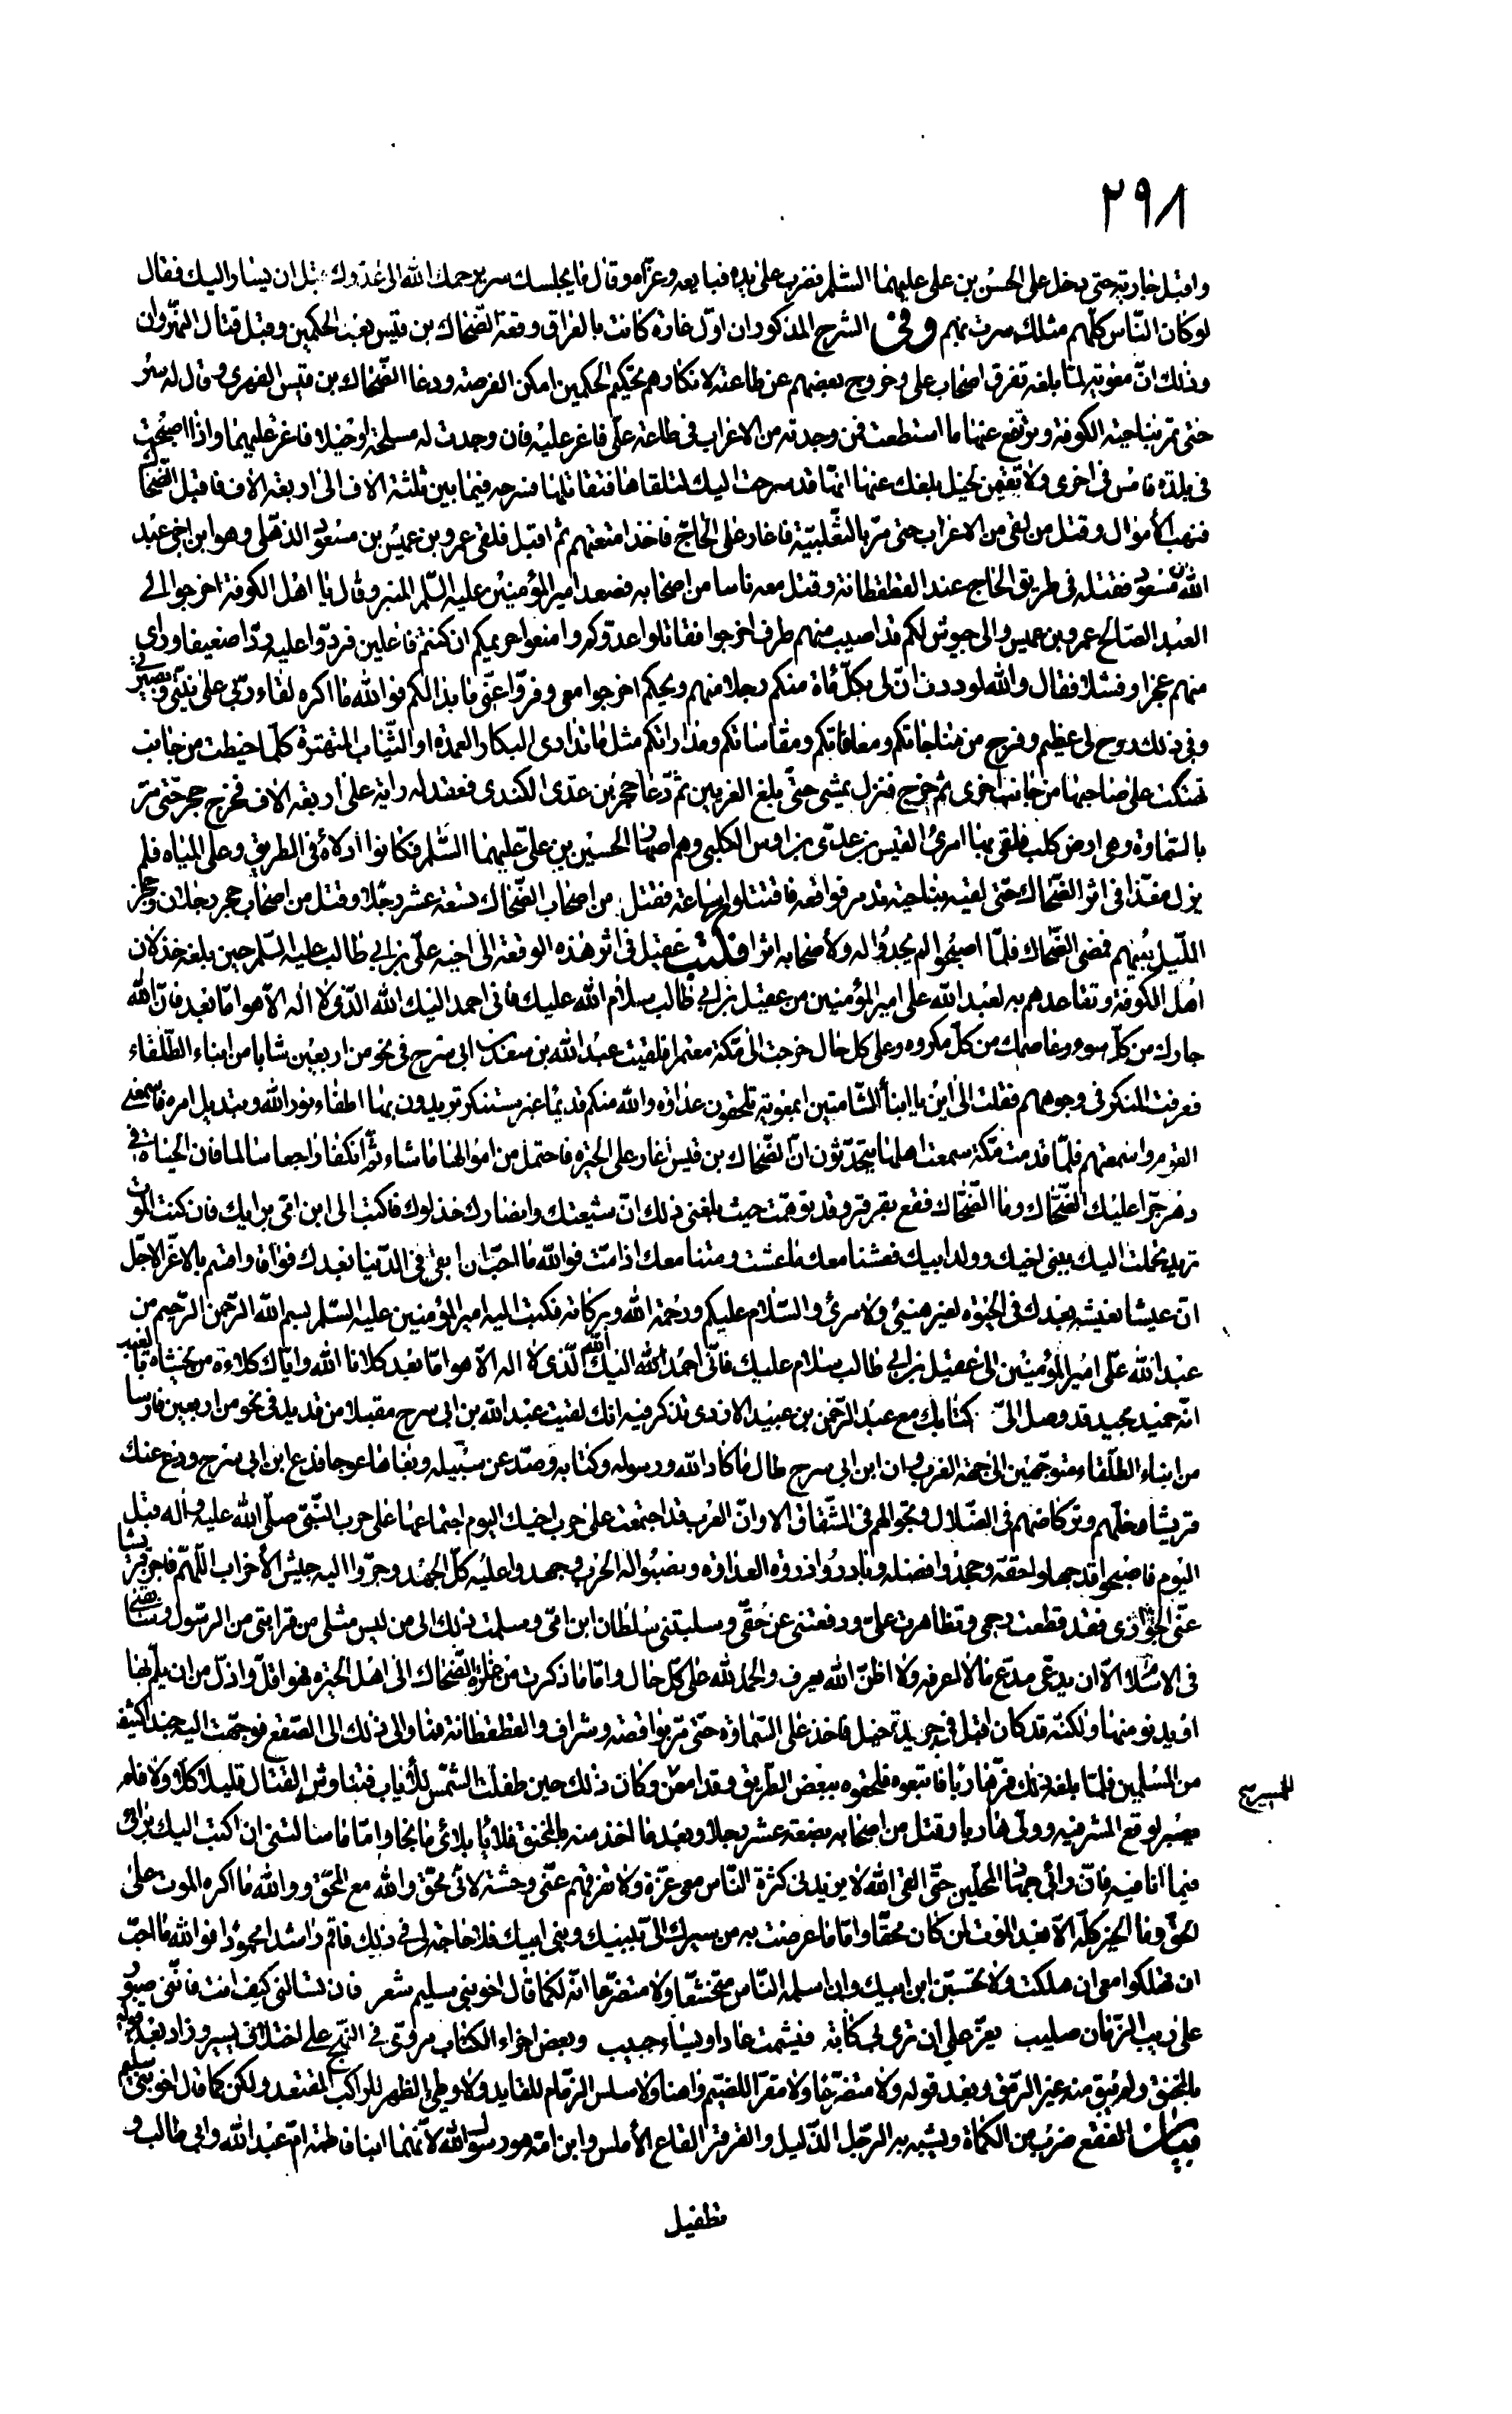 ٢٩٨
واقبل جارية حتى دخل على الحسن بن على عليهما السلم فضرب على يده فبايعه وعزاه وقال ما يجلسك سر يرحمك الله الى عدوك قبل ان يسار اليك فقال
لو كان الناس كلهم مثلك سرت بهم وفى الشرح المذكور ان اول غارة كانت بالعراق وقعة الضحاك بن قيس بعد الحكمين وقبل قتال النهروان
وذلك ان معوية لما بلغه تفرق اصحاب على وخروج بعضهم عن طاعته لانكارهم تحكيم الحكمين امكن الفرصة ودعا الضحاك بن قيس الفهرى وقال له سر
حتى تمر بناحية الكوفة وترتفع عنها ما استطعت فمن وجدته من الاعراب فى طاعة على فاغر عليه فان وجدت له مسلحة او خيلا فاغر عليهما واذا اصبحت
فى بلدة فامس فى اخرى ولا تقيمن لخيل بلغك عنها انها قد سرحت اليك لتلقاها فتقاتلها فسرحه فيما بين ثلثة الاف الى اربعة الاف فاقبل الضحاك
فنهب الأموال وقتل من لقى من الاعراب حتى مر بالثعلبية فاغار على الحاج فاخذ امتعتهم ثم اقبل فلقى عمرو بن عميس بن مسعود الذهلى وهو ابن اخى عبد
الله بن مسعود فقتله فى طريق الحاج عند القطقطانة وقتل معه ناسا من اصحابه فصعد امير المؤمنين عليه السلم المنبر وقال يا اهل الكوفة اخرجوا الى
العبد الصالح عمرو بن عميس والى جيوش لكم قد اصيب منهم طرف اخرجوا فقاتلوا عدوكم وامنعوا حريمكم ان كنتم فاعلين فردوا عليه ردا ضعيفا وراى
منهم عجزا وفشلا فقال والله لوددت ان لى بكل مأة منكم رجلا منهم ويحكم اخرجوا معى وفروا عنى ما بدا لكم فوالله ما اكره لقاء ربى على نيتى وبصيرتى
وفى ذلك روح لى عظيم وفرج من مناجاتكم ومعاناتكم ومقاساتكم ومداراتكم مثل ما تدارى البكار العمدة او الثياب المتهترة كلما خيطت من جانب
تهتكت على صاحبها من جانب اخرى ثم خرج فنزل يمشى حتى بلغ الغريين ثم دعا حجر بن عدى الكندى فعقد له راية على اربعة الاف فخرج حجر حتى مر
بالسماوة وهى ارض كلب فلقى بها امرئ القيس بن عدى بن اوس الكلبى وهم اصهار الحسين بن على عليهما السلم فكانوا ادلاءه فى الطريق وعلى المياه فلم
يزل مغذا فى اثر الضحاك حتى لقيه بناحية تدمر فواقعه فاقتتلوا ساعة فقتل من اصحاب الضحاك تسعة عشر رجلا وقتل من اصحاب حجر رجلان وحجز
الليل بينهم فمضى الضحاك فلما اصبحوا لم يجدوا له ولأصحابه اثرا عقيل فى اثر هذه الوقعة الى اخيه على بن ابى طالب عليه السلم حين بلغه خذلان
اهل الكوفة وتقاعدهم به لعبد الله على امير المؤمنين من عقيل بن ابى طالب سلام الله عليك فانى احمد اليك الله الذى لا اله الا هو اما بعد فان الله
جارك من كل سوء وعاصمك من كل مكروه وعلى كل حال خرجت الى مكة معتمرا فلقيت عبد الله بن سعد بن ابى سرح فى نحو من اربعين شابا من ابناء الطلقاء
فعرفت المنكر فى وجوههم فقلت الى اين يا ابناء الشامتين ابمعوية تلحقون عداوة والله منكم قديما غير مستنكر تريدون بها اطفاء نور الله وتبديل امره فاسمعنى
القوم واسمعتهم فلما قدمت مكة سمعت اهلها يتحدثون ان الضحاك بن قيس اغار على الحيرة فاحتمل من اموالها ما شاء ثم انكفا راجعا سالما فان الحياة فى
دهر جرا عليك الضحاك وما الضحاك فقع بقرقر وقد توهمت حيث بلغنى ذلك ان شيعتك وانصارك خذلوك فاكتب الى ابن امى برايك فان كنت الموت
تريد تحملت اليك ببنى اخيك وولد ابيك فعشنا معك ما عشت ومتنا معك اذا مت فوالله ما احب ان ابقى فى الدنيا بعدك فواقا واقسم بالاعز الاجل
ان عيشا نعيشه بعدك فى الحيوة لغير هنيئ ولا مرئ والسلام عليكم ورحمة الله وبركاته فكتب اليه امير المؤمنين عليه السلم بسم الله الرحمن الرحيم من
عبد الله على امير المؤمنين الى عقيل بن ابى طالب سلام عليك فانى احمد الله اليك الله الذى لا اله الا هو اما بعد كلانا الله واياك كلاءة من يخشاه بالغيب
انه حميد مجيد قد وصل الى كتابك مع عبد الرحمن بن عبيد الازدى تذكر فيه انك لقيت عبد الله بن ابى سرح مقبلا من قديد فى نحو من اربعين فارسا
من ابناء الطلقاء متوجهين الى جهة الغرب وان ابن ابى سرح طال ما كاد الله ورسوله وكتابه وصد عن سبيله وبغاها عوجا فدع ابن ابى سرح ودع عنك
قريشا وخلهم وتركاضهم فى الضلال وتجوالهم فى الشقاق الا وان العرب قد اجتمعت على حرب اخيك اليوم اجتماعها على حرب النبى صلى الله عليه واله قبل
اليوم فاصبحوا قد جهلوا حقه وجحدوا فضله وبادروا ذروة العداوة ونصبوا له الحرب وجهدوا عليه كل الجهد وجروا اليه جيش الأحزاب اللهم فاجز قريشا
عنى الجوازى فقد قطعت رحمى وتظاهرت على ودفعتنى عن حقى وسلبتنى سلطان ابن امى وسلمت ذلك الى من ليس مثلى من قرابتى من الرسول وسابقتى
فى الاسلام الا ان يدعى مدع ما لا اعرفه ولا اظن الله يعرف والحمد لله على كل حال واما ما ذكرت من غارة الضحاك الى اهل الحيرة فهو اقل واذل من ان يلم بها
او يدنو منها ولكنه قد كان اقبل فى جريدة خيل فاخذ على السماوة حتى مر بواقصة وشراف والقطقطانة فما والى ذلك الى الصقع فوجهت اليه جندا كثيفا
من المسلمين فلما بلغه ذلك فر هاربا فاتبعوه فلحقوه ببعض الطريق وقد امعن وكان ذلك حين طفلت الشمس للأياب فتناوش القتال قليلا كلا ولا فلم
يصبر لوقع المشرفية وولى هاربا وقتل من اصحابه بضعة عشر رجلا وبعد ما اخذ منه بالمخنق فلأيا بلائى ما نجا واما ما سالتنى ان اكتب اليك برائى
فيما انا فيه فان رأى جهاد المحلين حتى القى الله لا يزيدنى كثرة الناس معى عزة ولا تفرقهم عنى وحشة لانى محق والله مع المحق ووالله ما اكره الموت على
الحق وما الخير كله الا بعد الموت لمن كان محقا واما ما عرضت به من سيرك الى ببنيك وبنى ابيك فلا حاجة لى فى ذلك فاقم راشدا محمودا فوالله ما احب
ان تهلكوا معى ان هلكت ولا تحسبن ابن ابيك وان اسلمه الناس متخشعا ولا متضرعا انه لكما قال اخو بنى سليم شعر فان تسالنى كيف انت فاننى صبور
على ريب الزمان صليب يعز على ان ترى بى كابة فيشمت عاد او يساء حبيب وبعض اجزاء الكتاب مروى فى النهج على اختلاف يسير وزاد بعد قوله
بالمخنق ولم يبق منه غير الرمق وبعد قوله ولا متضرعا ولا مقرا للضيم واهنا ولا سلس الزمام للقايد ولا وطى الظهر للراكب المقتعد ولكن كما قال اخو بنى سليم
بيان الفقع ضرب من الكماة ويشبه به الرجل الذليل والقرقر القاع الأملس وابن امه هو رسول الله لأنهما ابنا فاطمة ام عبد الله وابى طالب و
تطفيل